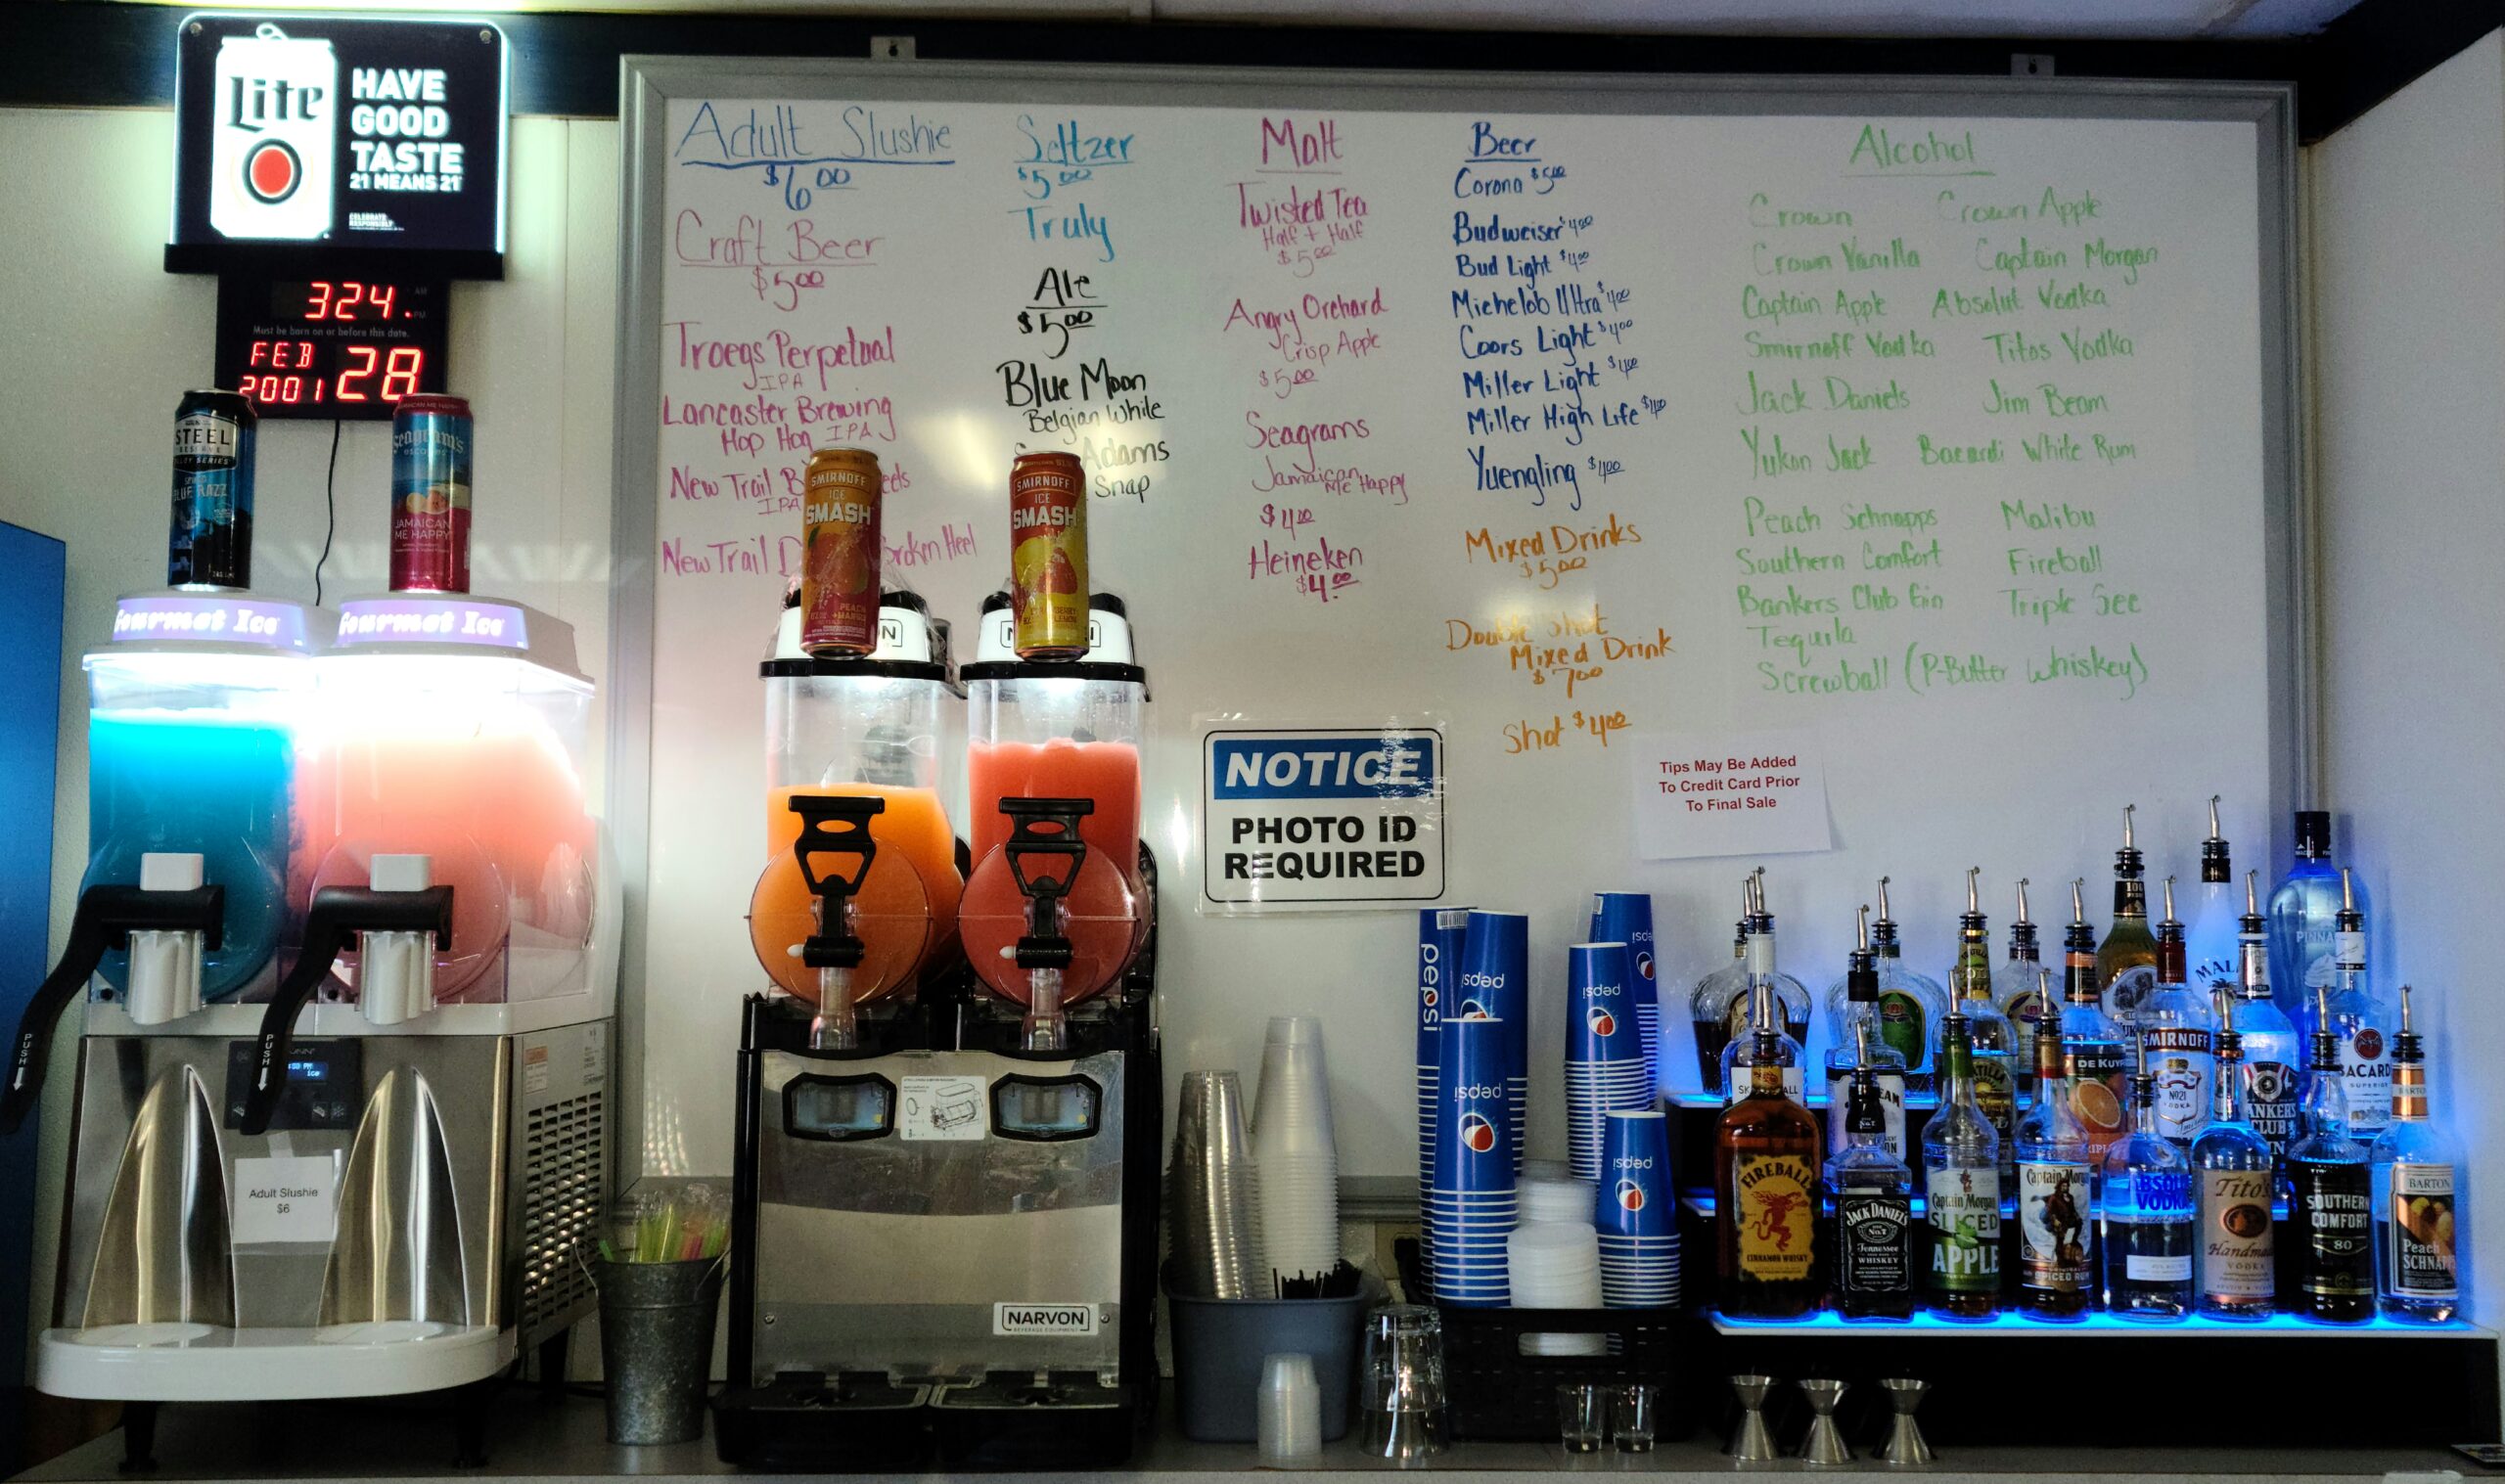 Lite
HAVE
GOOD
TASTE
21 MEANS 21
CELEBRATE
RESPONSIBLY
324
AM
PM
Must be born on or before this date.
FEB
2001 28
STEEL
RESERVE
ALLOY SERIES
BLUE RAZZ
Seagram's
escapes
JAMAICAN
ME HAPPY
Gourmet Ice
Gourmet Ice
PUSH
PUSH
Adult Slushie
$6
Adult Slushie
$6.00
Craft Beer
$5.00
Troegs Perpetual
IPA
Lancaster Brewing
Hop Hog IPA
New Trail B eels
IPA
New Trail D Broken Heel
Seltzer
$5.00
Truly
Ale
$5.00
Blue Moon
Belgian While
Adams
Snap
SMIRNOFF
ICE
SMASH
PEACH
+MANGO
SMIRNOFF
ICE
SMASH
LEMON
NARVON
BEVERAGE EQUIPMENT
Malt
Twisted Tea
Half + Half
$5.00
Angry Orchard
Crisp Apple
$5.00
Seagrams
Jamaican
Me Happy
$4.00
Heineken
$4.00
Beer
Corona $5.00
Budweiser $4.00
Bud Light $4.00
Michelob Ultra $4.00
Coors Light $4.00
Miller Light $4.00
Miller High Life $4.00
Yuengling $4.00
Mixed Drinks
$5.00
Double Shot
Mixed Drink
$7.00
Shot $4.00
Alcohol
Crown Crown Apple
Crown Vanilla Captain Morgan
Captain Apple Absolut Vodka
Smirnoff Vodka Titos Vodka
Jack Daniels Jim Beam
Yukon Jack Bacardi White Rum
Peach Schnapps Malibu
Southern Comfort Fireball
Bankers Club Gin Triple Sec
Tequila
Screwball (P-Butter Whiskey)
NOTICE
PHOTO ID
REQUIRED
Tips May Be Added
To Credit Card Prior
To Final Sale
pepsi
pepsi
pepsi
pepsi
pepsi
pepsi
PINNA
MAL
SMIRNOFF
No21
VODKA
DE KUYP
BACARD
SUPERIOR
BANKERS
CLUB
FIREBALL
CINNAMON WHISKY
JACK DANIEL'S
Tennessee
WHISKEY
Captain Morgan
SLICED
APPLE
Captain Morgan
SPICED RUM
ABSOLUT
VODKA
Tito's
Handmade
VODKA
SOUTHERN
COMFORT
80
BARTON
Peach
SCHNAPPS